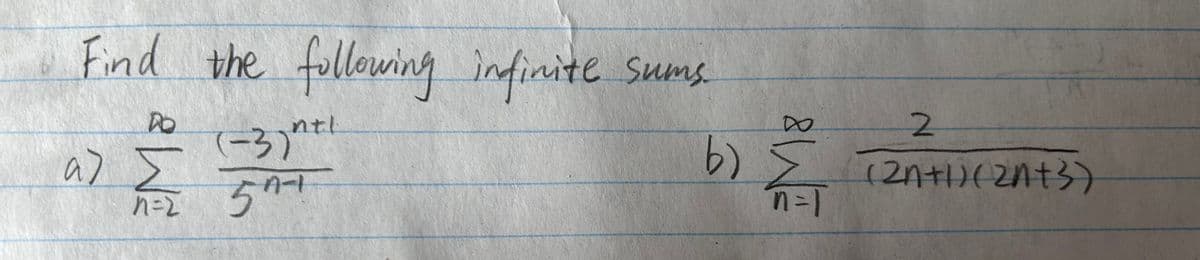 Find the following infinite sums.
a) ∞ Σ n=2 (-3)^{n+1} / 5^{n-1}
b) ∞ Σ n=1 2 / (2n+1)(2n+3)